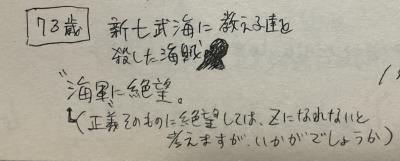 73歳 新七武海に教え子達を
殺した海賊
"海軍"に絶望。
(正義そのものに絶望しては、Zになれないと
考えますが、いかがでしょうか)